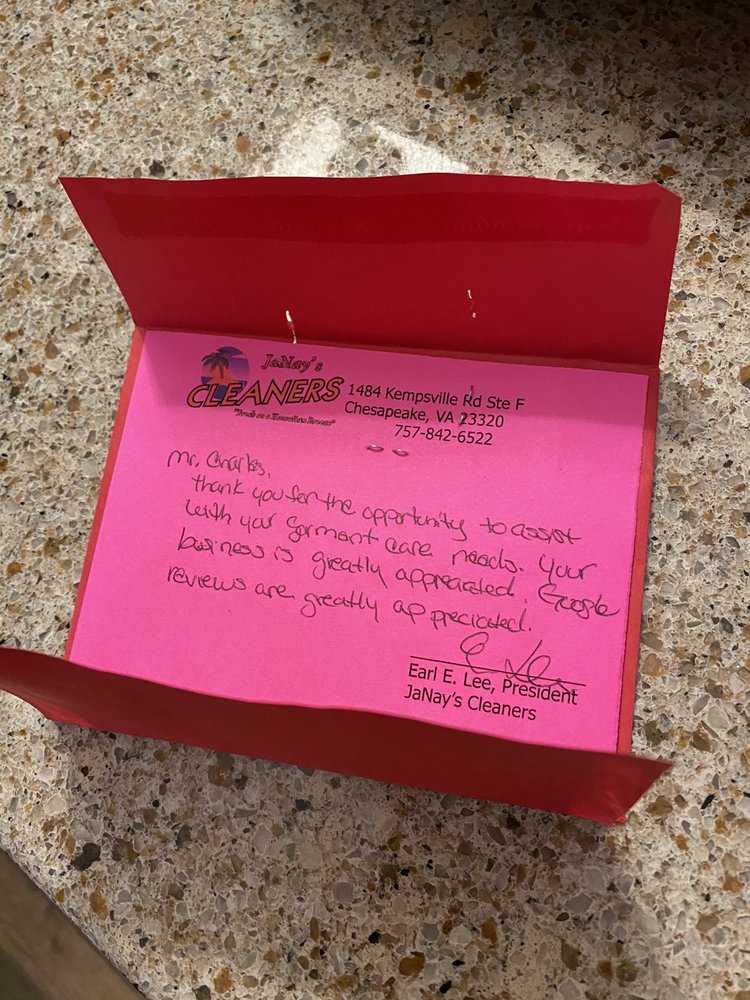 JaNay's
CLEANERS
"Fresh as a Hawaiian Breeze"
1484 Kempsville Rd Ste F
Chesapeake, VA 23320
757-842-6522
Mr. Charles,
Thank you for the opportunity to assist
with your garment care needs. Your
business is greatly appreciated. Google
reviews are greatly appreciated.
Earl E. Lee, President
JaNay's Cleaners